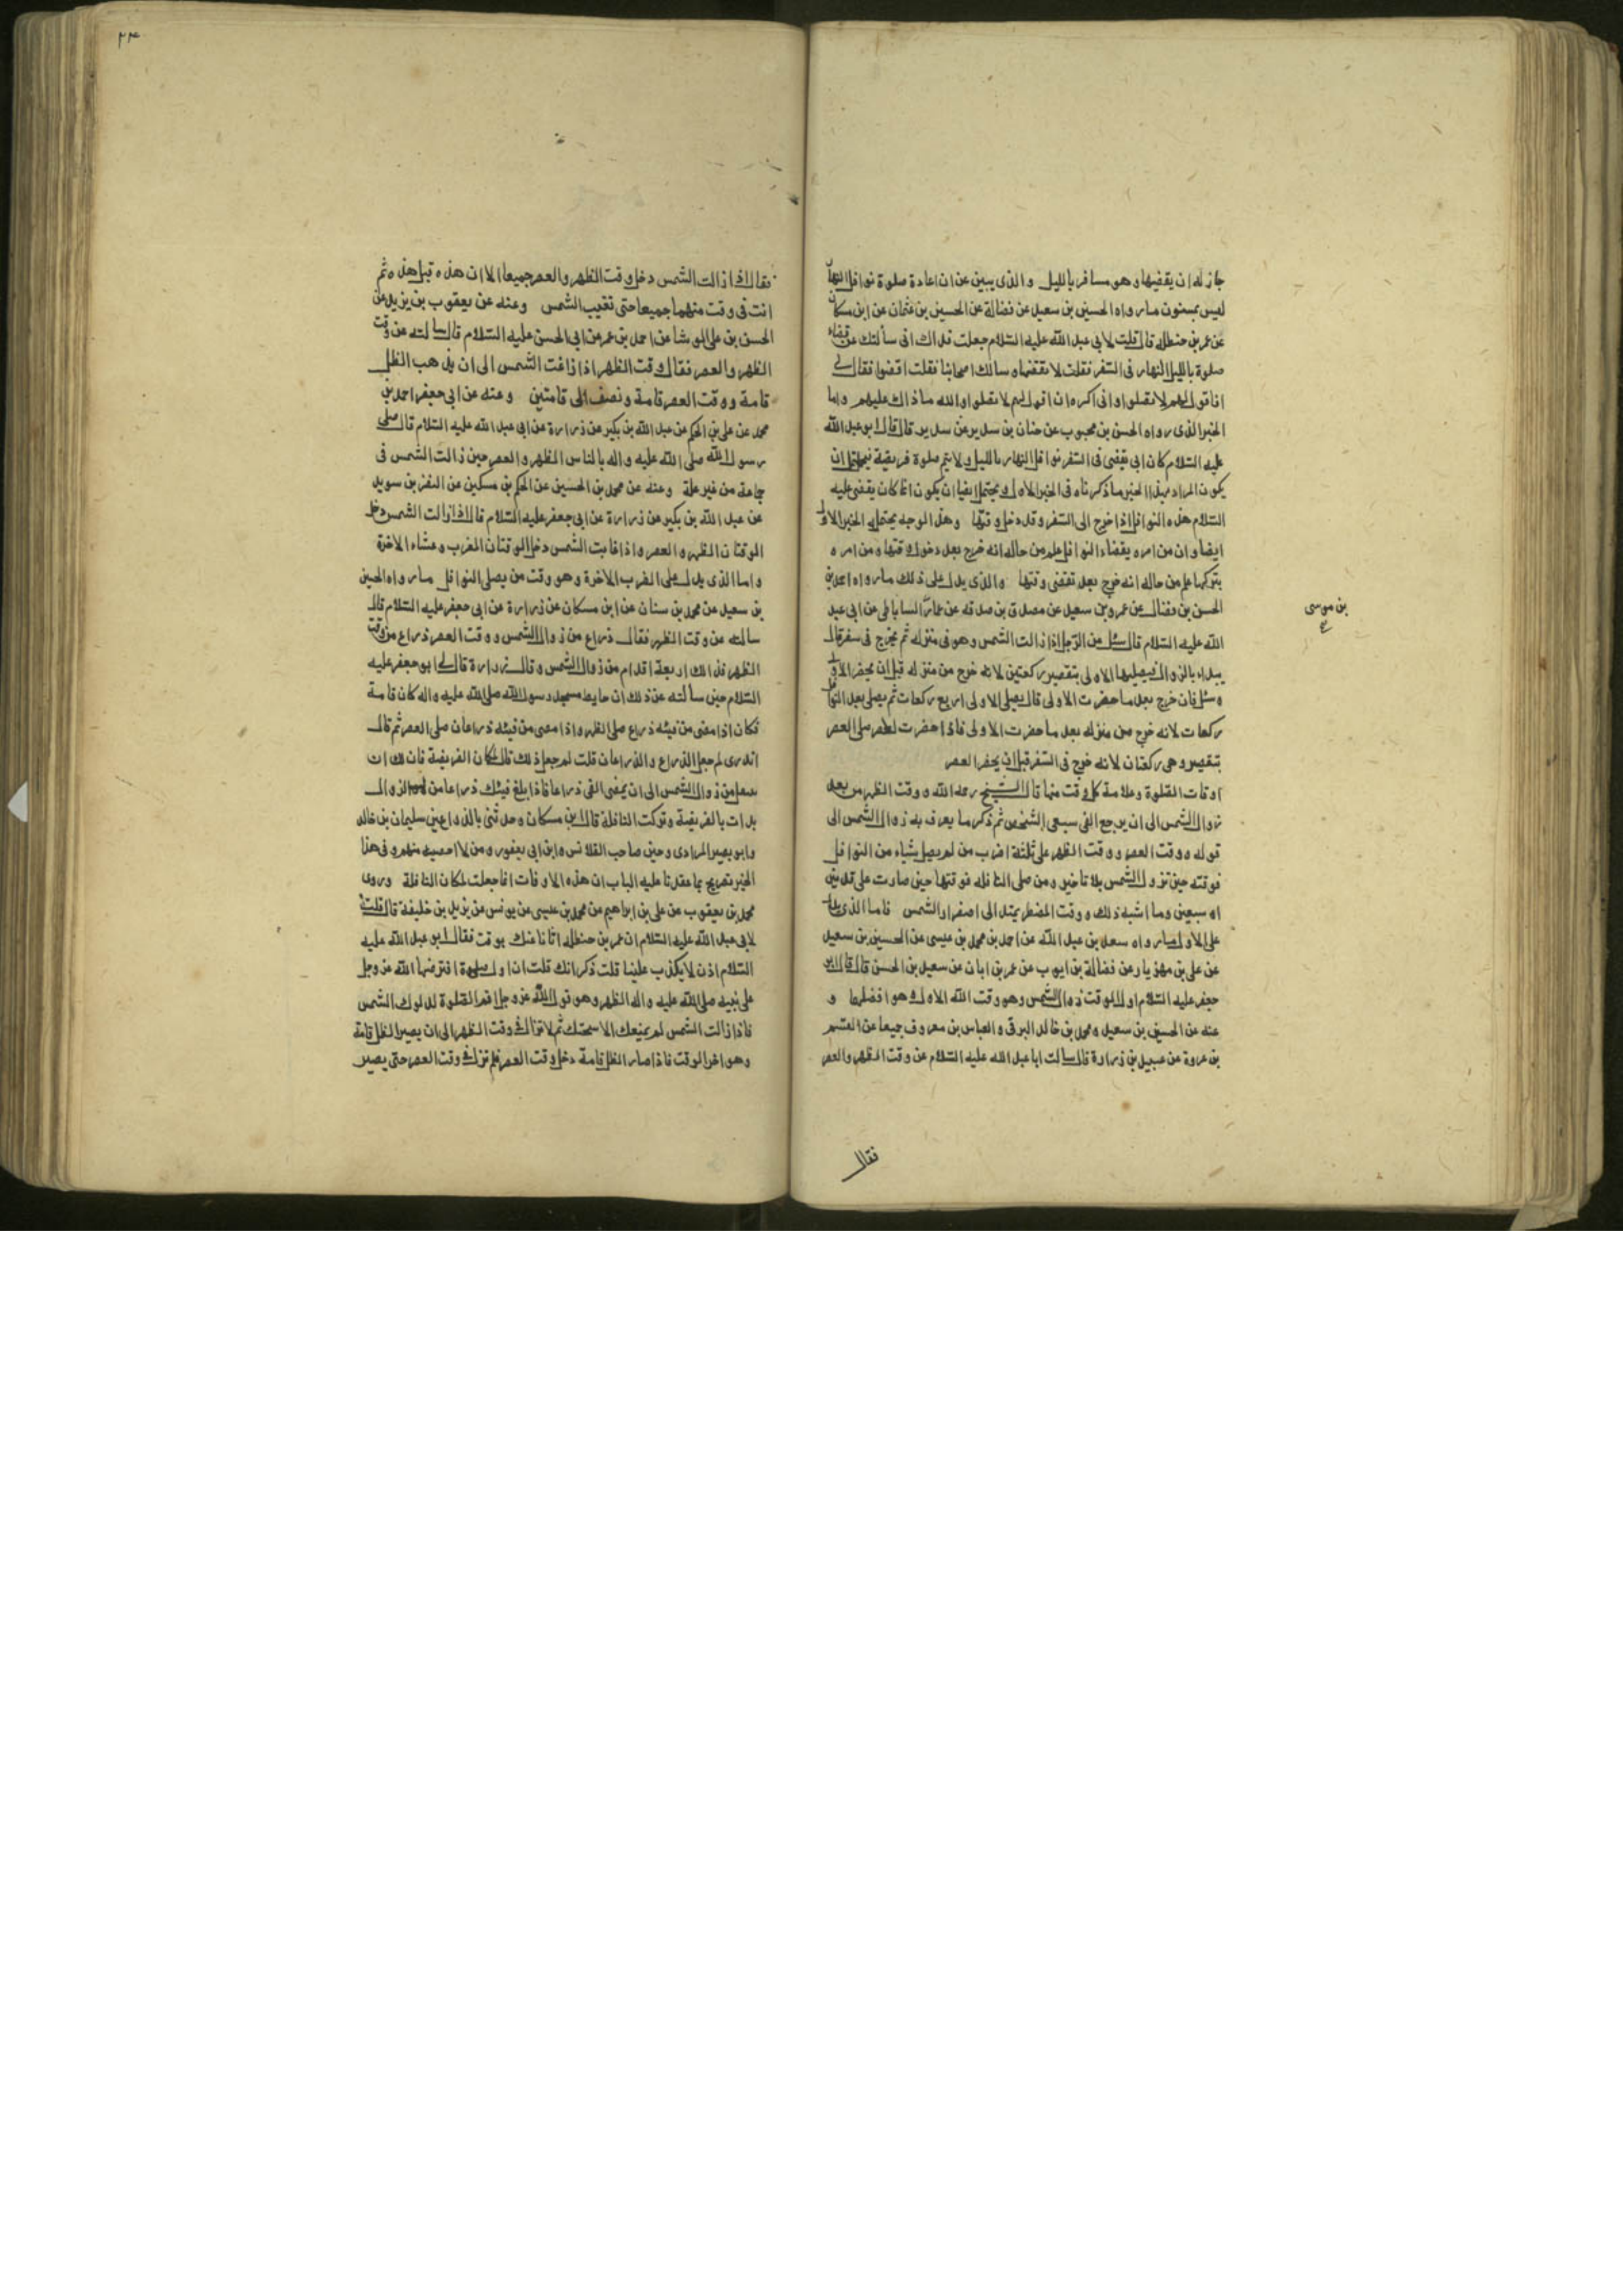 جاز له ان يقضيها وهو مسافر بالليل والذى يبين عن ان اعادة صلوة نوافل النهار
ليس بمسنون ما رواه الحسين بن سعيد عن فضالة عن الحسين بن عثمان عن ابن مسكان
عن عمر بن حنظلة قال قلت لابى عبد الله عليه السّلام جعلت فداك انى سألتك عن قضاء
صلوة بالليل النهار فى السّفر فقلت لا تقضها وسالك اصحابنا فقلت اقضوا فقال لى
افاقول لهم لا تصلوا وانى اكره ان اقول لهم لا تصلوا والله ما ذاك عليهم واما
الخبر الذى رواه الحسن بن محبوب عن حنان بن سدير عن سدير قال قال ابو عبد الله
عليه السّلام كان ابى يقضى فى السّفر نوافل النهار بالليل ولا يتم صلوة فريضة فيحتمل ان
يكون المراد بهذا الخبر ما ذكرناه فى الخبر الاول ويحتمل ايضا ان يكون انما كان يقضى عليه
السّلام هذه النوافل اذا خرج الى السّفر وقد دخل وقتها وهذا الوجه يحتمله الخبر الاول
ايضا وان من امره بقضاء النوافل علم من حاله انه خرج بعد دخول وقتها ومن امره
بتركها علم من حاله انه خرج بعد تقضى وقتها والذى يدل على ذلك ما رواه احمد بن
الحسن بن فضال عن عمرو بن سعيد عن مصدق بن صدقه عن عمّار الساباطى عن ابى عبد
الله عليه السّلام قال سئل عن الرّجل اذا زالت الشّمس وهو فى منزله ثم يخرج فى سفر قال
يبداء بالزوال فيصليها الاولى بتقصير ركعتين لانه خرج من منزله قبل ان يحضر الاولى
وسئل فان خرج بعد ما حضرت الاولى قال يصلى الاولى اربع ركعات ثم يصلى بعد النوافل
ركعات لانه خرج من منزله بعد ما حضرت الاولى فاذا حضرت العصر صلى العصر
بتقصير وهى ركعتان لانه خرج فى السّفر قبل ان يحضر العصر
اوقات الصّلوة وعلامة كل وقت منها قال الشيخ رحمه الله ووقت الظهر من بعد
زوال الشّمس الى ان يرجع الفى سبعى الشّخص ثم ذكر ما يعرف به زوال الشّمس الى
قوله ووقت العصر ووقت الظهر على ثلثة اضرب من لم يصل شياء من النوافل
فوقته حين تزول الشّمس بلا تاخير ومن صلى النافله فوقتها حين صارت على قدمين
او سبعين وما اشبه ذلك ووقت المضطر يمتد الى اصفرار الشّمس فاما الذى يدل
على الاول ما رواه سعد بن عبد الله عن احمد بن محمد بن عيسى عن الحسين بن سعيد
عن على بن مهزيار عن فضالة بن ايوب عن عمر بن ابان عن سعيد بن الحسن قال قال ابو
جعفر عليه السّلام اول الوقت زوال الشّمس وهو وقت الله الاول وهو افضلهما و
عنه عن الحسين بن سعيد ومحمد بن خالد البرقى والعباس بن معروف جميعا عن القسم
بن عروة عن عبيد بن زرارة قال سالت ابا عبد الله عليه السّلام عن وقت الظهر والعصر
بن موسى
ع
فقال
٢٣
فقال اذا زالت الشّمس دخل وقت الظهر والعصر جميعا الا ان هذه قبل هذه ثم
انت فى وقت منهما جميعا حتى تغيب الشّمس وعنه عن يعقوب بن يزيد عن
الحسن بن على الوشا عن احمد بن عمر عن ابى الحسن عليه السّلام قال سالته عن وقت
الظهر والعصر فقال وقت الظهر اذا زاغت الشّمس الى ان يذهب الظل
قامة ووقت العصر قامة ونصف الى قامتين وعنه عن ابى جعفر احمد بن
محمد عن على بن الحكم عن عبد الله بن بكير عن زرارة عن ابى عبد الله عليه السّلام قال صلّى
رسول الله صلى الله عليه واله بالناس الظهر والعصر حين زالت الشّمس فى
جماعة من غير علة وعنه عن محمد بن الحسين عن الحكم بن مسكين عن النضر بن سويد
عن عبد الله بن بكير عن زرارة عن ابى جعفر عليه السّلام قال اذا زالت الشّمس دخل
الوقتان الظهر والعصر واذا غابت الشّمس دخل الوقتان المغرب وعشاء الاخرة
واما الذى يدل على الضرب الاخرة وهو وقت من يصلى النوافل ما رواه الحسين
بن سعيد عن محمد بن سنان عن ابن مسكان عن زرارة عن ابى جعفر عليه السّلام قال
سالته عن وقت الظهر فقال ذراع من زوال الشّمس ووقت العصر ذراع من وقت
الظهر فذلك اربعة اقدام من زوال الشّمس وقال زرارة قال لى ابو جعفر عليه
السّلام حين سالته عن ذلك ان حايط مسجد رسول الله صلى الله عليه واله كان قامة
فكان اذا مضى من فيئه ذراع صلى الظهر واذا مضى من فيئه ذراعان صلى العصر ثم قال
اتدرى لم جعل الذراع والذراعان قلت لم جعل ذلك قال لمكان الفريضة فان لك ان
من زوال الشّمس الى ان يمضى الفى ذراعا فاذا بلغ فيئك ذراعا من الزوال
بدات بالفريضة وتركت النافلة قال ابن مسكان وحدثنى بالذراعين سليمان بن خالد
وابو بصير المرادى وحسين صاحب القلانس وابن ابى يعفور ومن لا احصيه منهم وفى هذا
الخبر تصريح بما عقدنا عليه الباب ان هذه الاوقات انما جعلت لمكان النافلة وروى
محمد بن يعقوب عن على بن ابراهيم عن محمد بن عيسى عن يونس عن يزيد بن خليفة قال قلت
لابى عبد الله عليه السّلام ان عمر بن حنظله اتانا عنك بوقت فقال ابو عبد الله عليه
السّلام اذن لا يكذب علينا قلت ذكر انك قلت ان اول صلوة افترضها الله عز وجل
على نبيه صلى الله عليه واله الظهر وهو قول الله عز وجل اقم الصّلوة لدلوك الشّمس
فاذا زالت الشّمس لم يمنعك الا سبحتك ثم لا تزال فى وقت الظهر الى ان يصير الظل قامة
وهو اخر الوقت فاذا صار الظل قامة دخل وقت العصر فلم تزل فى وقت العصر حتى يصير